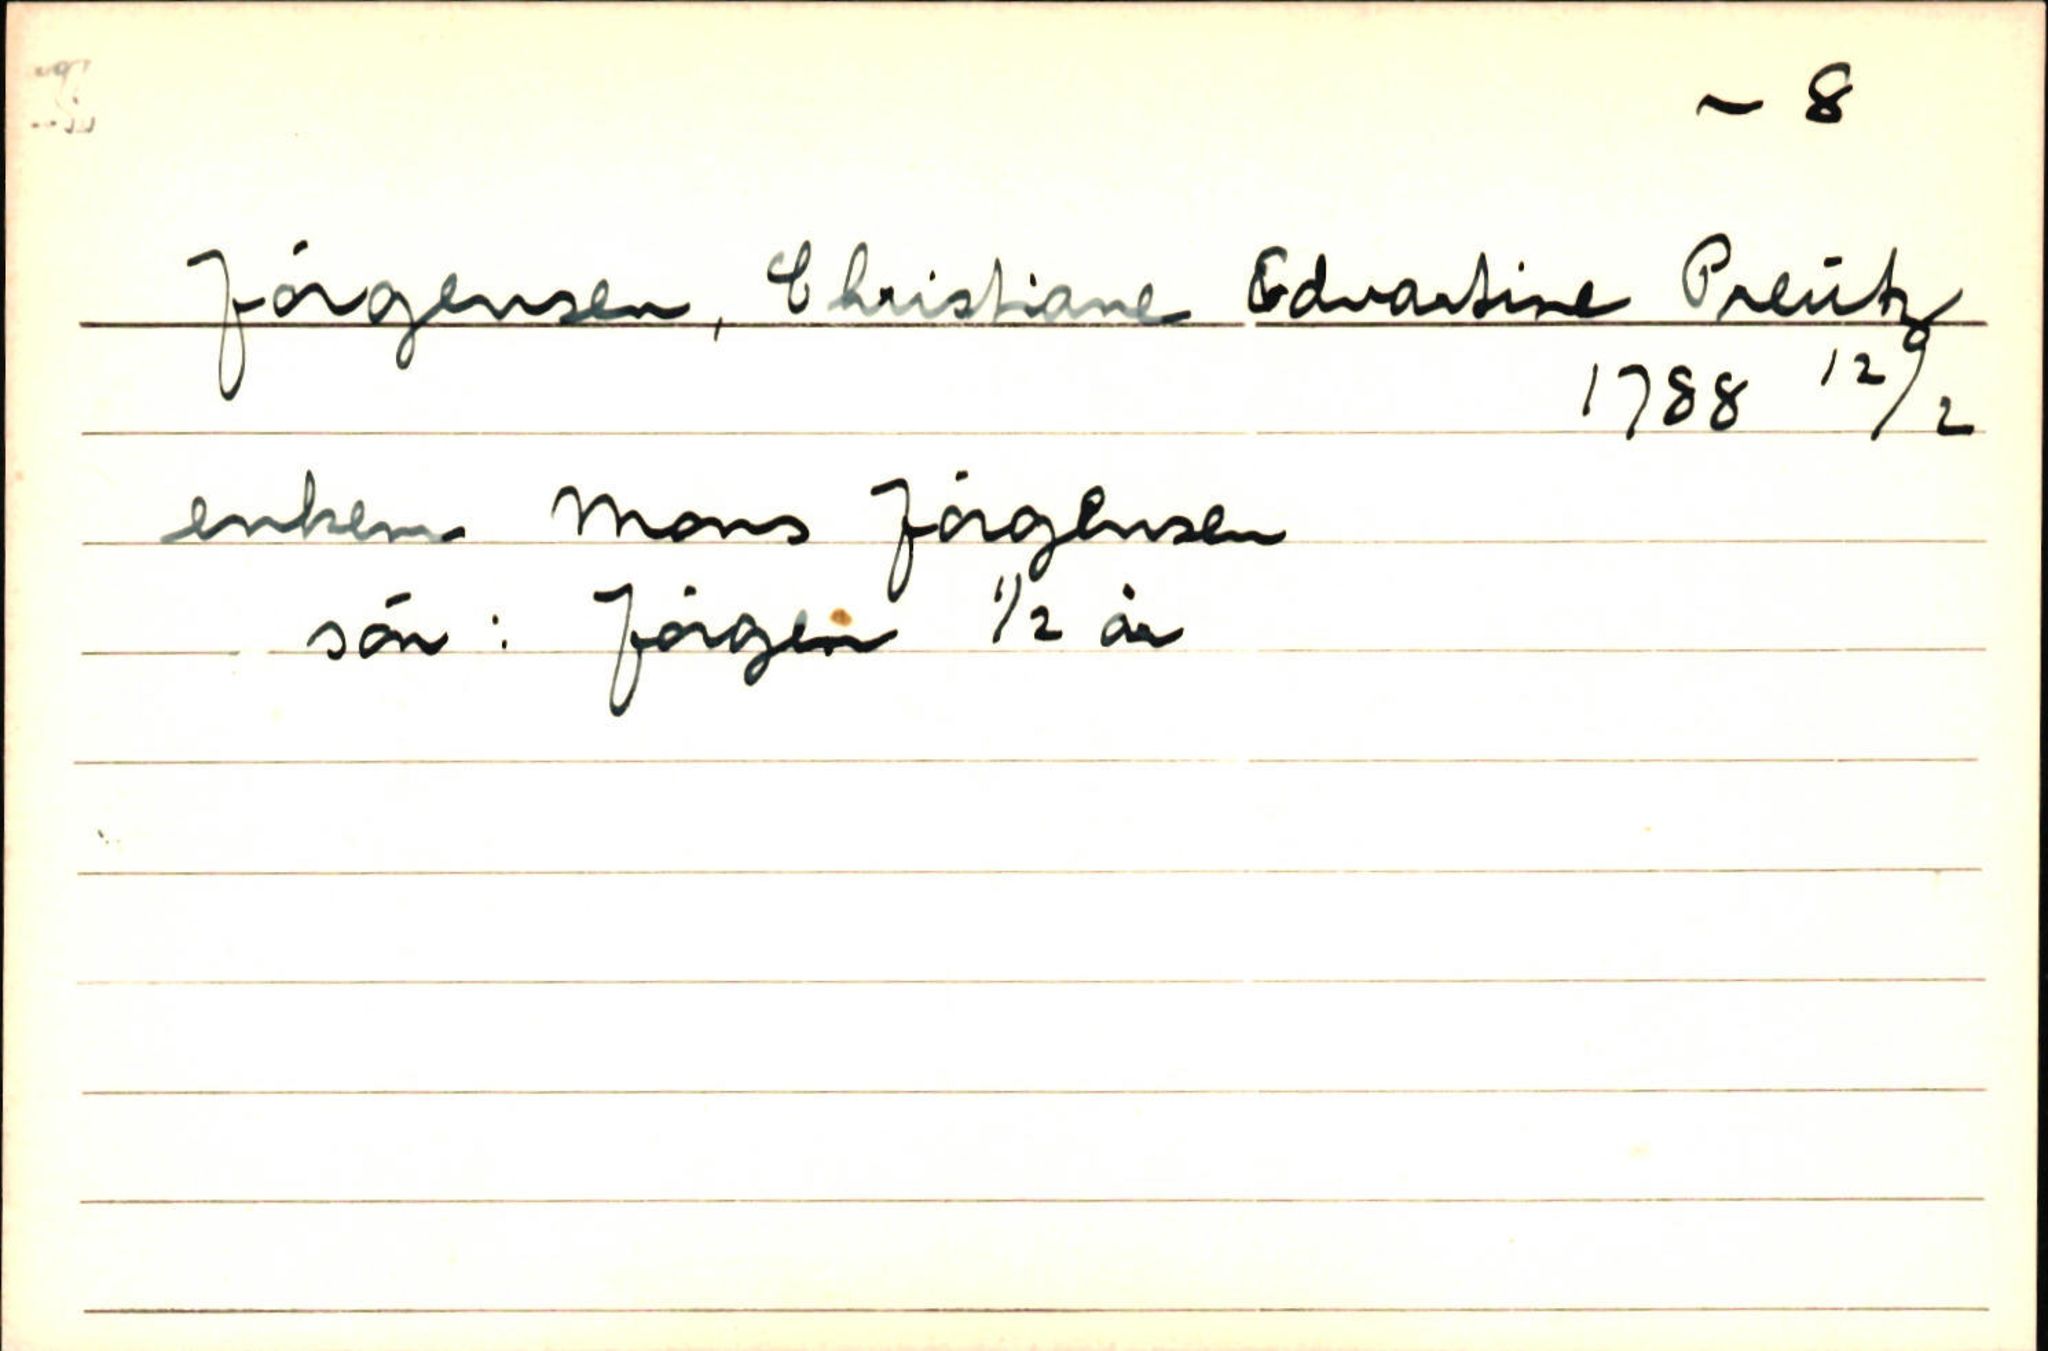 ~ 8
Jórgensen, Christiane Edvartine Preütz
1788 12/2
enkem. Mons Jórgensen
són : Jórgen 1/2 år